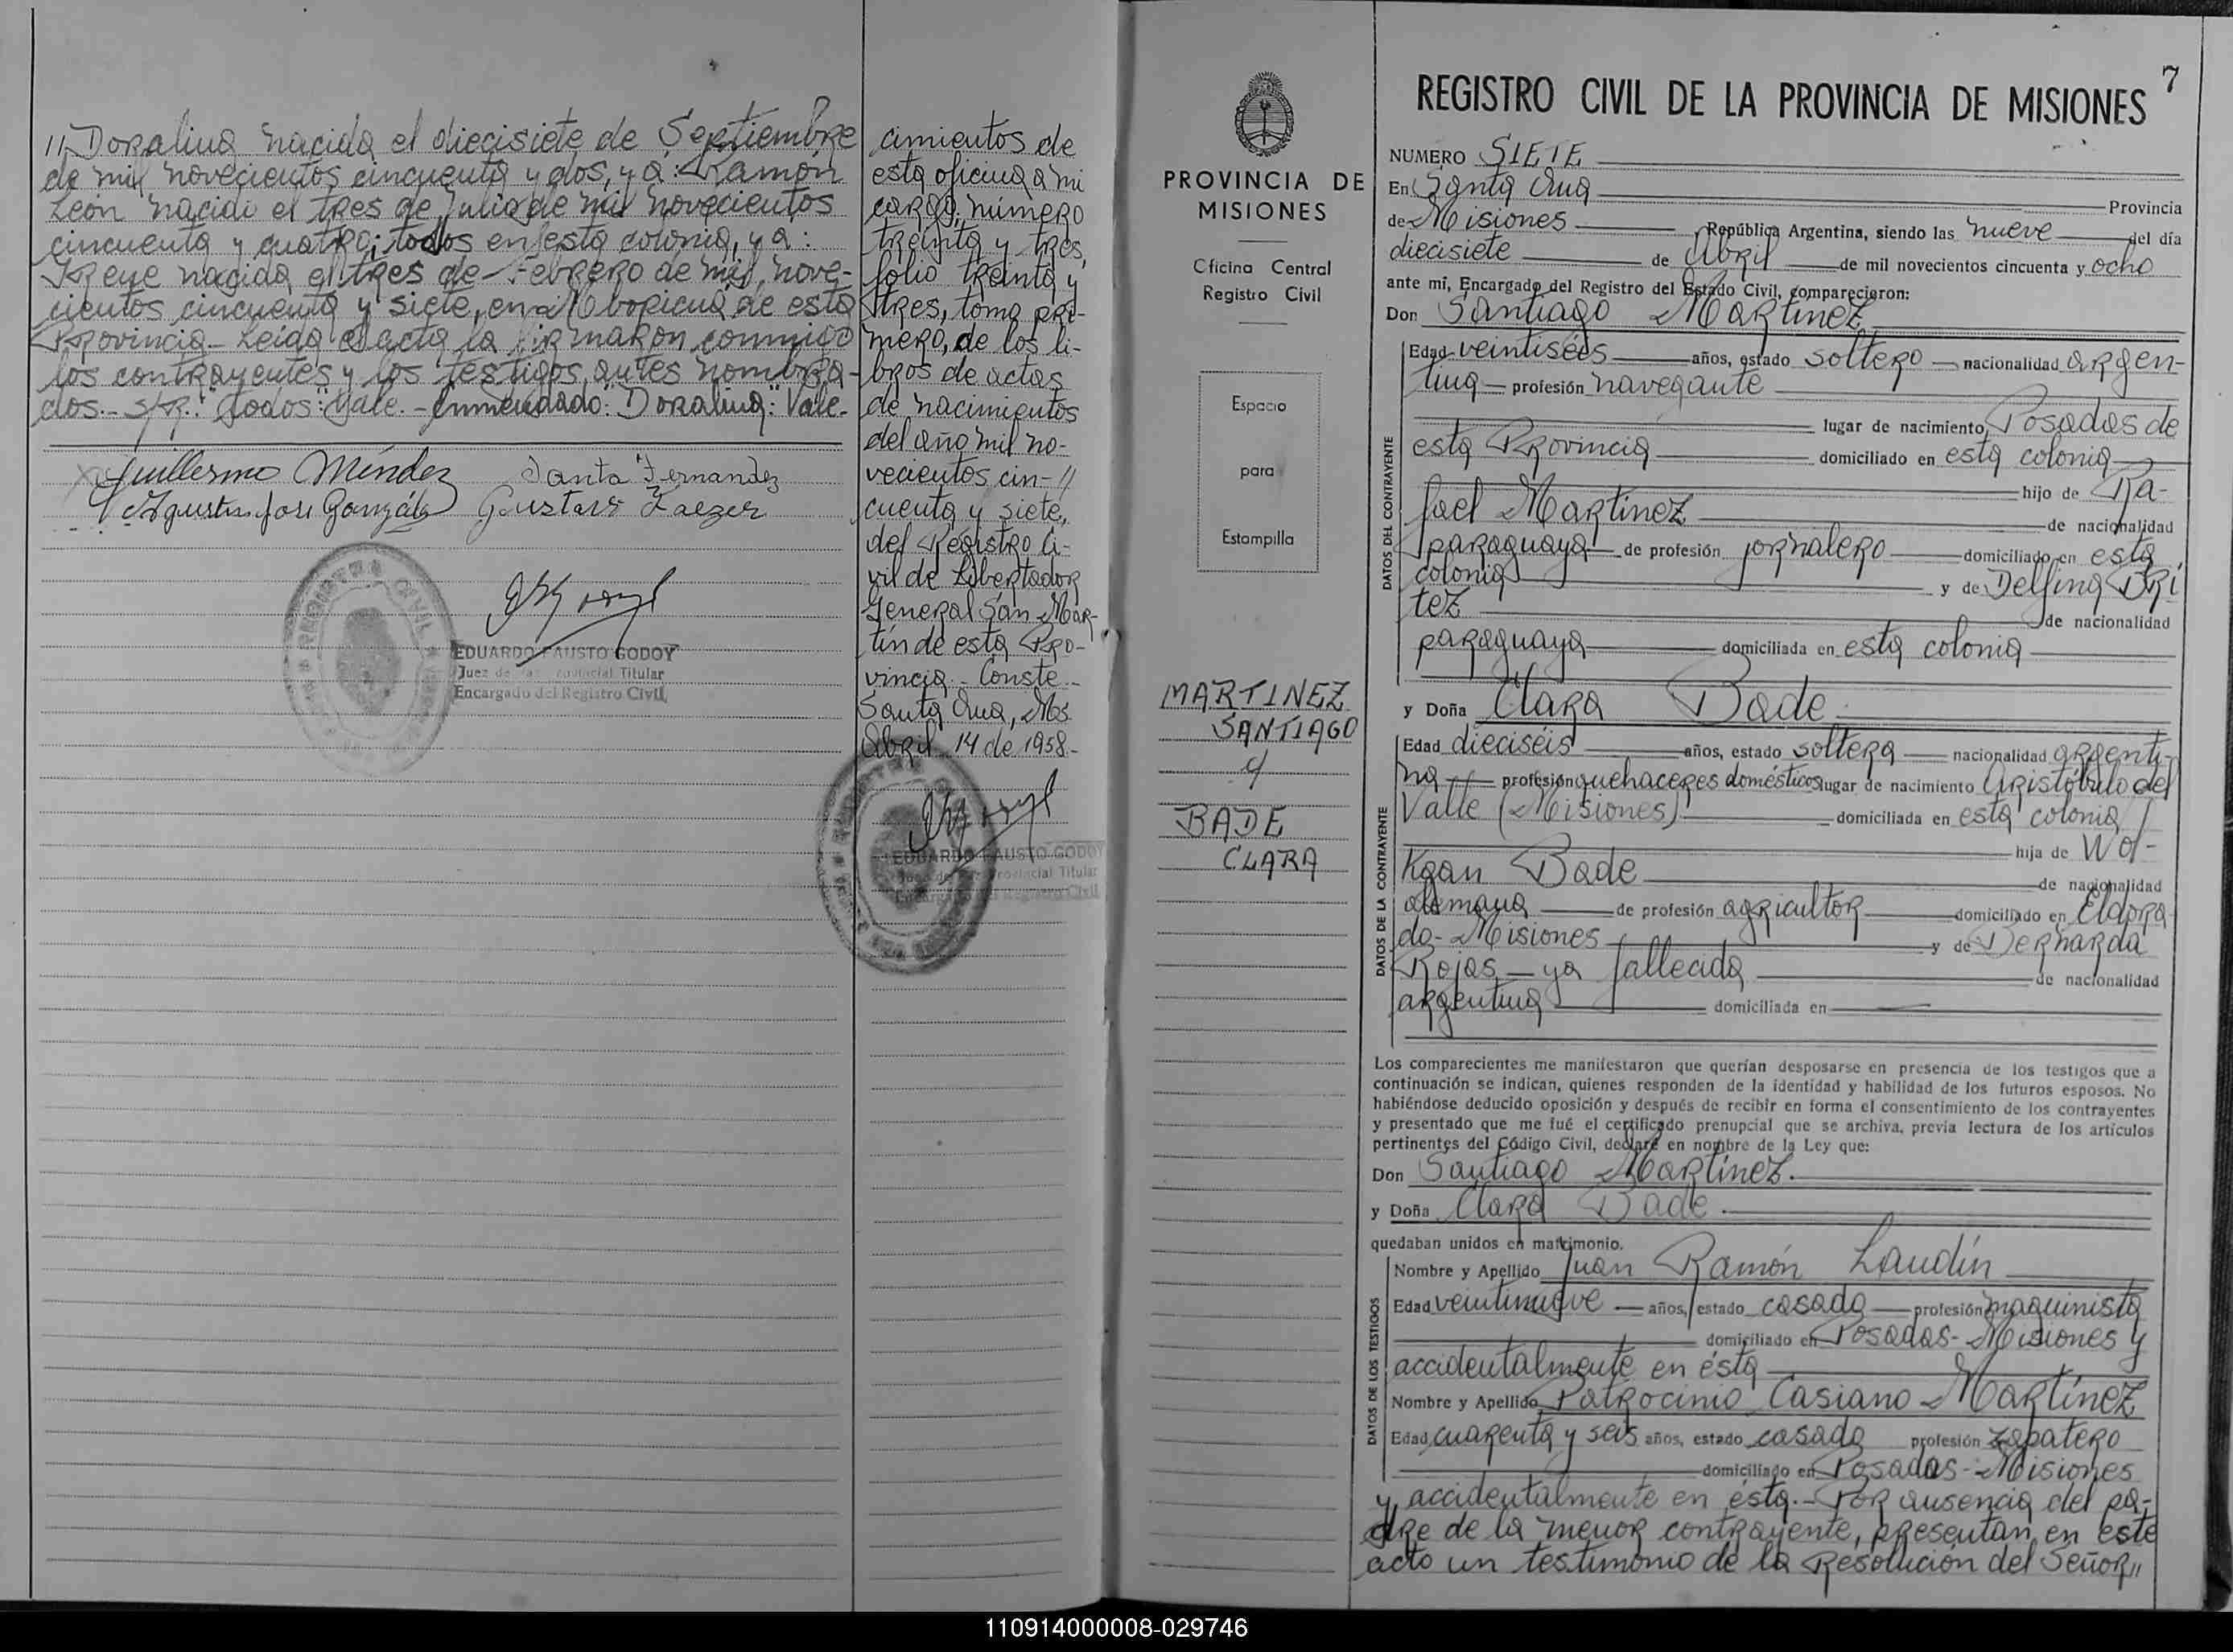 11 Doralina nacida el diecisiete de Septiembre
de mil novecientos cincuenta y dos, y a: Ramón
León nacido el tres de Julio de mil novecientos
cincuenta y cuatro; todos en esta colonia, y a:
Irene nacida el tres de Febrero de mil nove-
cientos cincuenta y siete, en de esta
Provincia.- Leída el acta la firmaron conmigo
los contrayentes y los testigos antes nombra-
dos.- S/R: "todos": Vale.- Enmendado: "Doralina": Vale.-
Guillermo Méndez Santa Fernandez
Agustin José González Gustavo
EDUARDO FAUSTO GODOY
Juez de Paz Provincial Titular
Encargado del Registro Civil
cimientos de
esta oficina a mi
cargo, número
treinta y tres,
folio treinta y
tres, tomo pri-
mero, de los li-
bros de actas
de nacimientos
del año mil no-
vecientos cin-//
cuenta y siete,
del Registro Ci-
vil de Libertador
General San Mar-
tín de esta Pro-
vincia.- Conste.-
Santa Ana, Mns.
Abril 14 de 1958.-
EDUARDO FAUSTO GODOY
Juez de Paz Provincial Titular
Encargado del Registro Civil
PROVINCIA DE
MISIONES
Oficina Central
Registro Civil
Espacio
para
Estampilla
MARTINEZ
SANTIAGO
y
BADE
CLARA
7
REGISTRO CIVIL DE LA PROVINCIA DE MISIONES
NUMERO SIETE
En Santa Ana Provincia
de Misiones República Argentina, siendo las nueve del día
diecisiete de Abril de mil novecientos cincuenta y ocho
ante mi, Encargado del Registro del Estado Civil, comparecieron:
Don Santiago Martínez
DATOS DEL CONTRAYENTE
Edad veintiséis años, estado soltero nacionalidad argen-
tina profesión navegante
lugar de nacimiento Posadas de
esta Provincia domiciliado en esta colonia
hijo de Ra-
fael Martínez de nacionalidad
paraguaya de profesión jornalero domiciliado en esta
colonia y de Delfina Brí
tez de nacionalidad
paraguaya domiciliada en esta colonia
y Doña Clara Bade
DATOS DE LA CONTRAYENTE
Edad dieciséis años, estado soltera nacionalidad argenti-
na profesión quehaceres domésticos lugar de nacimiento Aristóbulo del
Valle (Misiones) domiciliada en esta colonia
hija de Wol-
Kgan Bade de nacionalidad
alemana de profesión agricultor domiciliado en Eldora
do- Misiones y de Bernarda
Rojas - ya fallecida de nacionalidad
argentina domiciliada en
Los comparecientes me manifestaron que querían desposarse en presencia de los testigos que a
continuación se indican, quienes responden de la identidad y habilidad de los futuros esposos. No
habiéndose deducido oposición y después de recibir en forma el consentimiento de los contrayentes
y presentado que me fué el certificado prenupcial que se archiva, previa lectura de los artículos
pertinentes del Código Civil, declaré en nombre de la Ley que:
Don Santiago Martínez.
y Doña Clara Bade.
quedaban unidos en matrimonio.
DATOS DE LOS TESTIGOS
Nombre y Apellido Juan Ramón Landín
Edad veintinueve años, estado casado profesión maquinista
domiciliado en Posadas- Misiones y
accidentalmente en ésta
Nombre y Apellido Patrocinio Casiano Martínez
Edad cuarenta y seis años, estado casado profesión zapatero
domiciliado en Posadas- Misiones
y accidentalmente en ésta.- Por ausencia del pa-
dre de la menor contrayente, presentan en este
acto un testimonio de la Resolución del Señor//
110914000008-029746